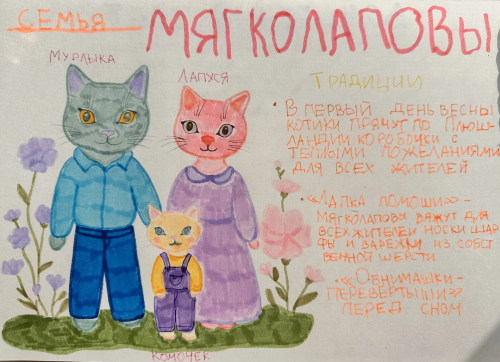 СЕМЬЯ МЯГКОЛАПОВЫ
МУРЛЫКА
ЛАПУСЯ
ТРАДИЦИИ
• В ПЕРВЫЙ ДЕНЬ ВЕСНЫ
КОТИКИ ПРЯЧУТ ПО ПЛЮШ-
ЛАНДИИ КОРОБОЧКИ С
ТЕПЛЫМИ ПОЖЕЛАНИЯМИ
ДЛЯ ВСЕХ ЖИТЕЛЕЙ
• «ЛАПКА ПОМОЩИ» -
МЯГКОЛАПОВЫ ВЯЖУТ ДЛЯ
ВСЕХ ЖИТЕЛЕЙ НОСКИ ШАР
ФЫ И ВАРЕЖКИ ИЗ СОБСТ
ВЕННОЙ ШЕРСТИ
• «ОБНИМАШКИ-
ПЕРЕВЕРТЫШИ»
ПЕРЕД СНОМ
КОМОЧЕК